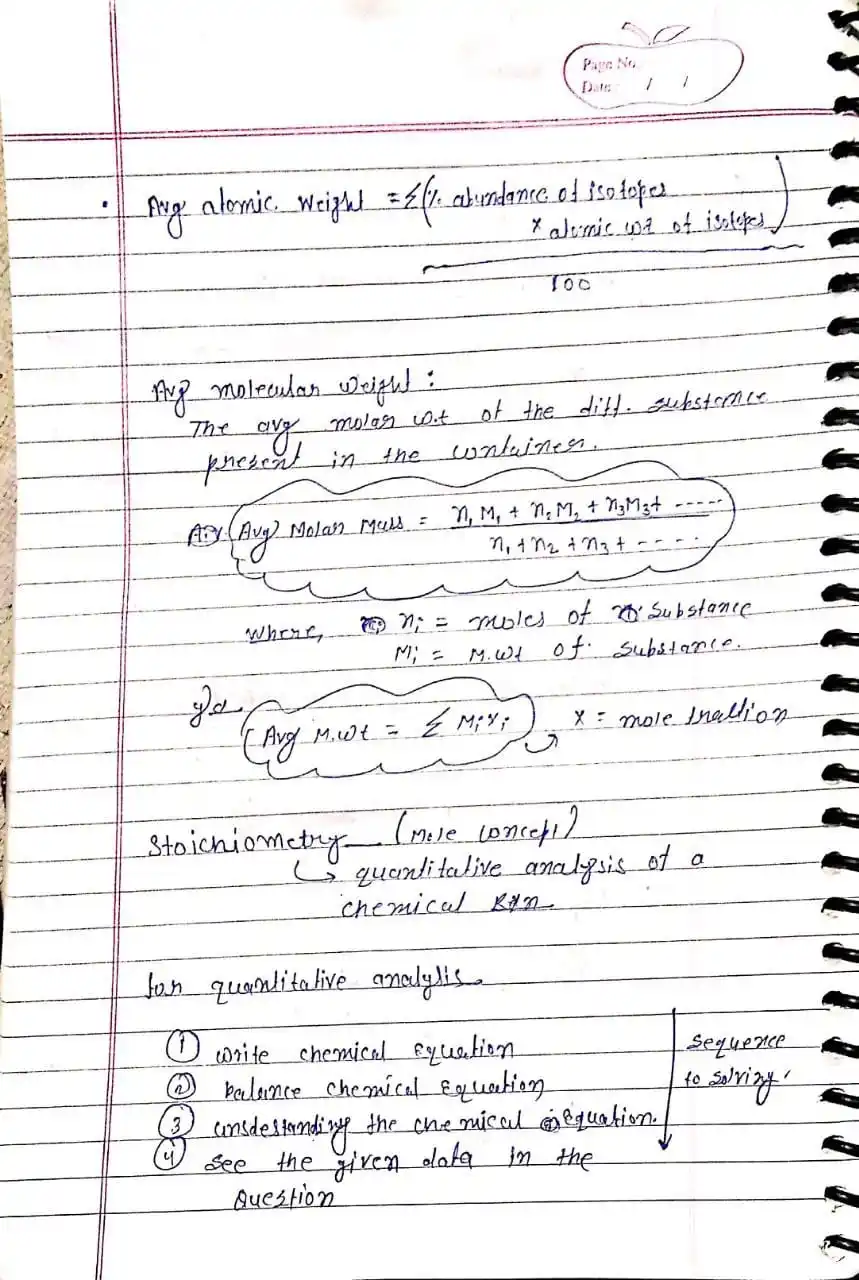 Page No.
Date: / /
• Avg atomic weight = Σ(% abundance of isotopes
x atomic wt of isotopes)
100
Avg molecular weight :
The avg molar w.t of the diff. substance
present in the container.
(Avg) Molar Mass = n₁M₁ + n₂M₂ + n₃M₃+ -----
n₁+n₂+n₃+ ----
where, nᵢ = moles of substance
Mᵢ = M.wt of substance.
Avg M.wt = Σ Mᵢxᵢ x = mole fraction
Stoichiometry (Mole concept)
↳ quantitative analysis of a
chemical Rxn.
for quantitative analysis
① write chemical Equation
② balance chemical Equation
③ understanding the chemical equation.
④ see the given data in the
Question
Sequence
to solving